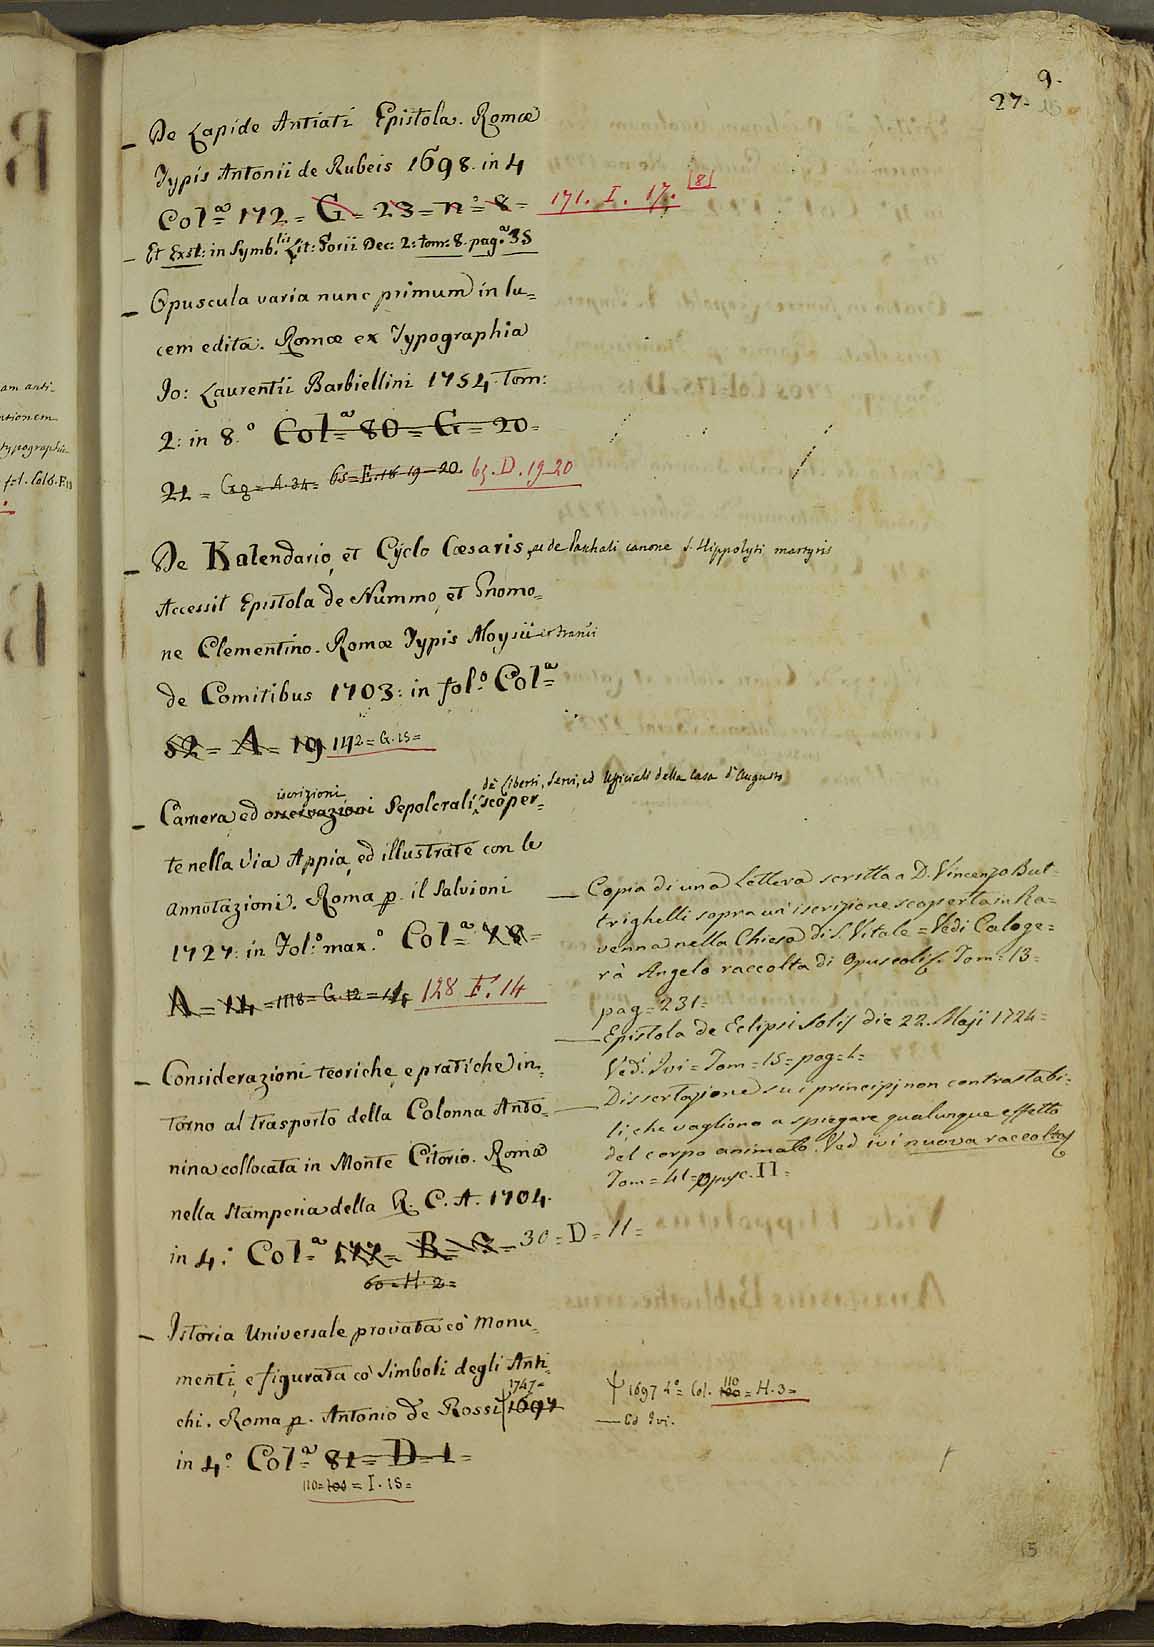 9.
27. 15
— De Lapide Antiati Epistola. Romæ
Typis Antonii de Rubeis 1698. in 4
Col.ª 172 = G = 23 = n.° 8 = 171. I. 17. [8]
— Et Exst: in Symb.lis Lit: Gorii Dec: 2: tom: 8. pag.ª 35
— Opuscula varia nunc primum in lu=
cem edita. Romæ ex Typographia
Jo: Laurentii Barbiellini 1754. Tom:
2: in 8.° Col.ª 80 = G = 20=
21 = Gg = A. 34= 65=E.18 19-20. 65. D. 19-20
— De Kalendario, et Cyclo Cæsaris, ac de Paschali canone S. Hippolyti martyris
Accessit Epistola de Nummo, et Gnomo=
ne Clementino. Romæ Typis Aloysii et Franci
de Comitibus 1703: in fol.° Col.ª
52 = A = 19 142= G. 15=
de' Liberti, Servi, ed Ufficiali della Casa d'Augusto
iscrizioni
— Camera ed osservazioni Sepolcrali scoper=
te nella Via Appia, ed illustrate con le
annotazioni. Roma p. il Salvioni
1727: in Fol.° max.° Col.ª 78=
A = 14 = 1118= G. 12 = 14 128 F. 14
— Considerazioni teoriche, e pratiche in=
torno al trasporto della Colonna Anto=
nina collocata in Monte Citorio. Roma
nella Stamperia della R. C. A. 1704.
in 4.° Col.ª 177= B= C= 30 = D = 11=
60=H. 2=
— Istoria Universale provata cò Monu=
menti, e figurata cò Simboli degli Anti=
1747=
chi. Roma p. Antonio de Rossi 1697
in 4.° Col.ª 81= D=1=
110=100= I. 15=
— Copia di una Lettera scritta a D. Vincenzo But=
trighelli sopra un' iscrizione scoperta in Ra=
venna nella Chiesa di S. Vitale = Vedi Caloge=
rà Angelo raccolta di Opuscoli S. Tom= 13=
pag= 231=
— Epistola de Eclipsi Solis die 22. Maji 1724=
Vedi Ivi= Tom= 15= pag= 1=
— Dissertazione sui principj non contrastabi=
li, che vagliono a spiegare qualunque effetto
del corpo animato. Ved ivi nuova raccolta
Tom= 41= Opusc. II=
1697 4.°= Col. 110 100= H. 3=
— Ed Ivi.
am anti=
ntionem
typographia
15